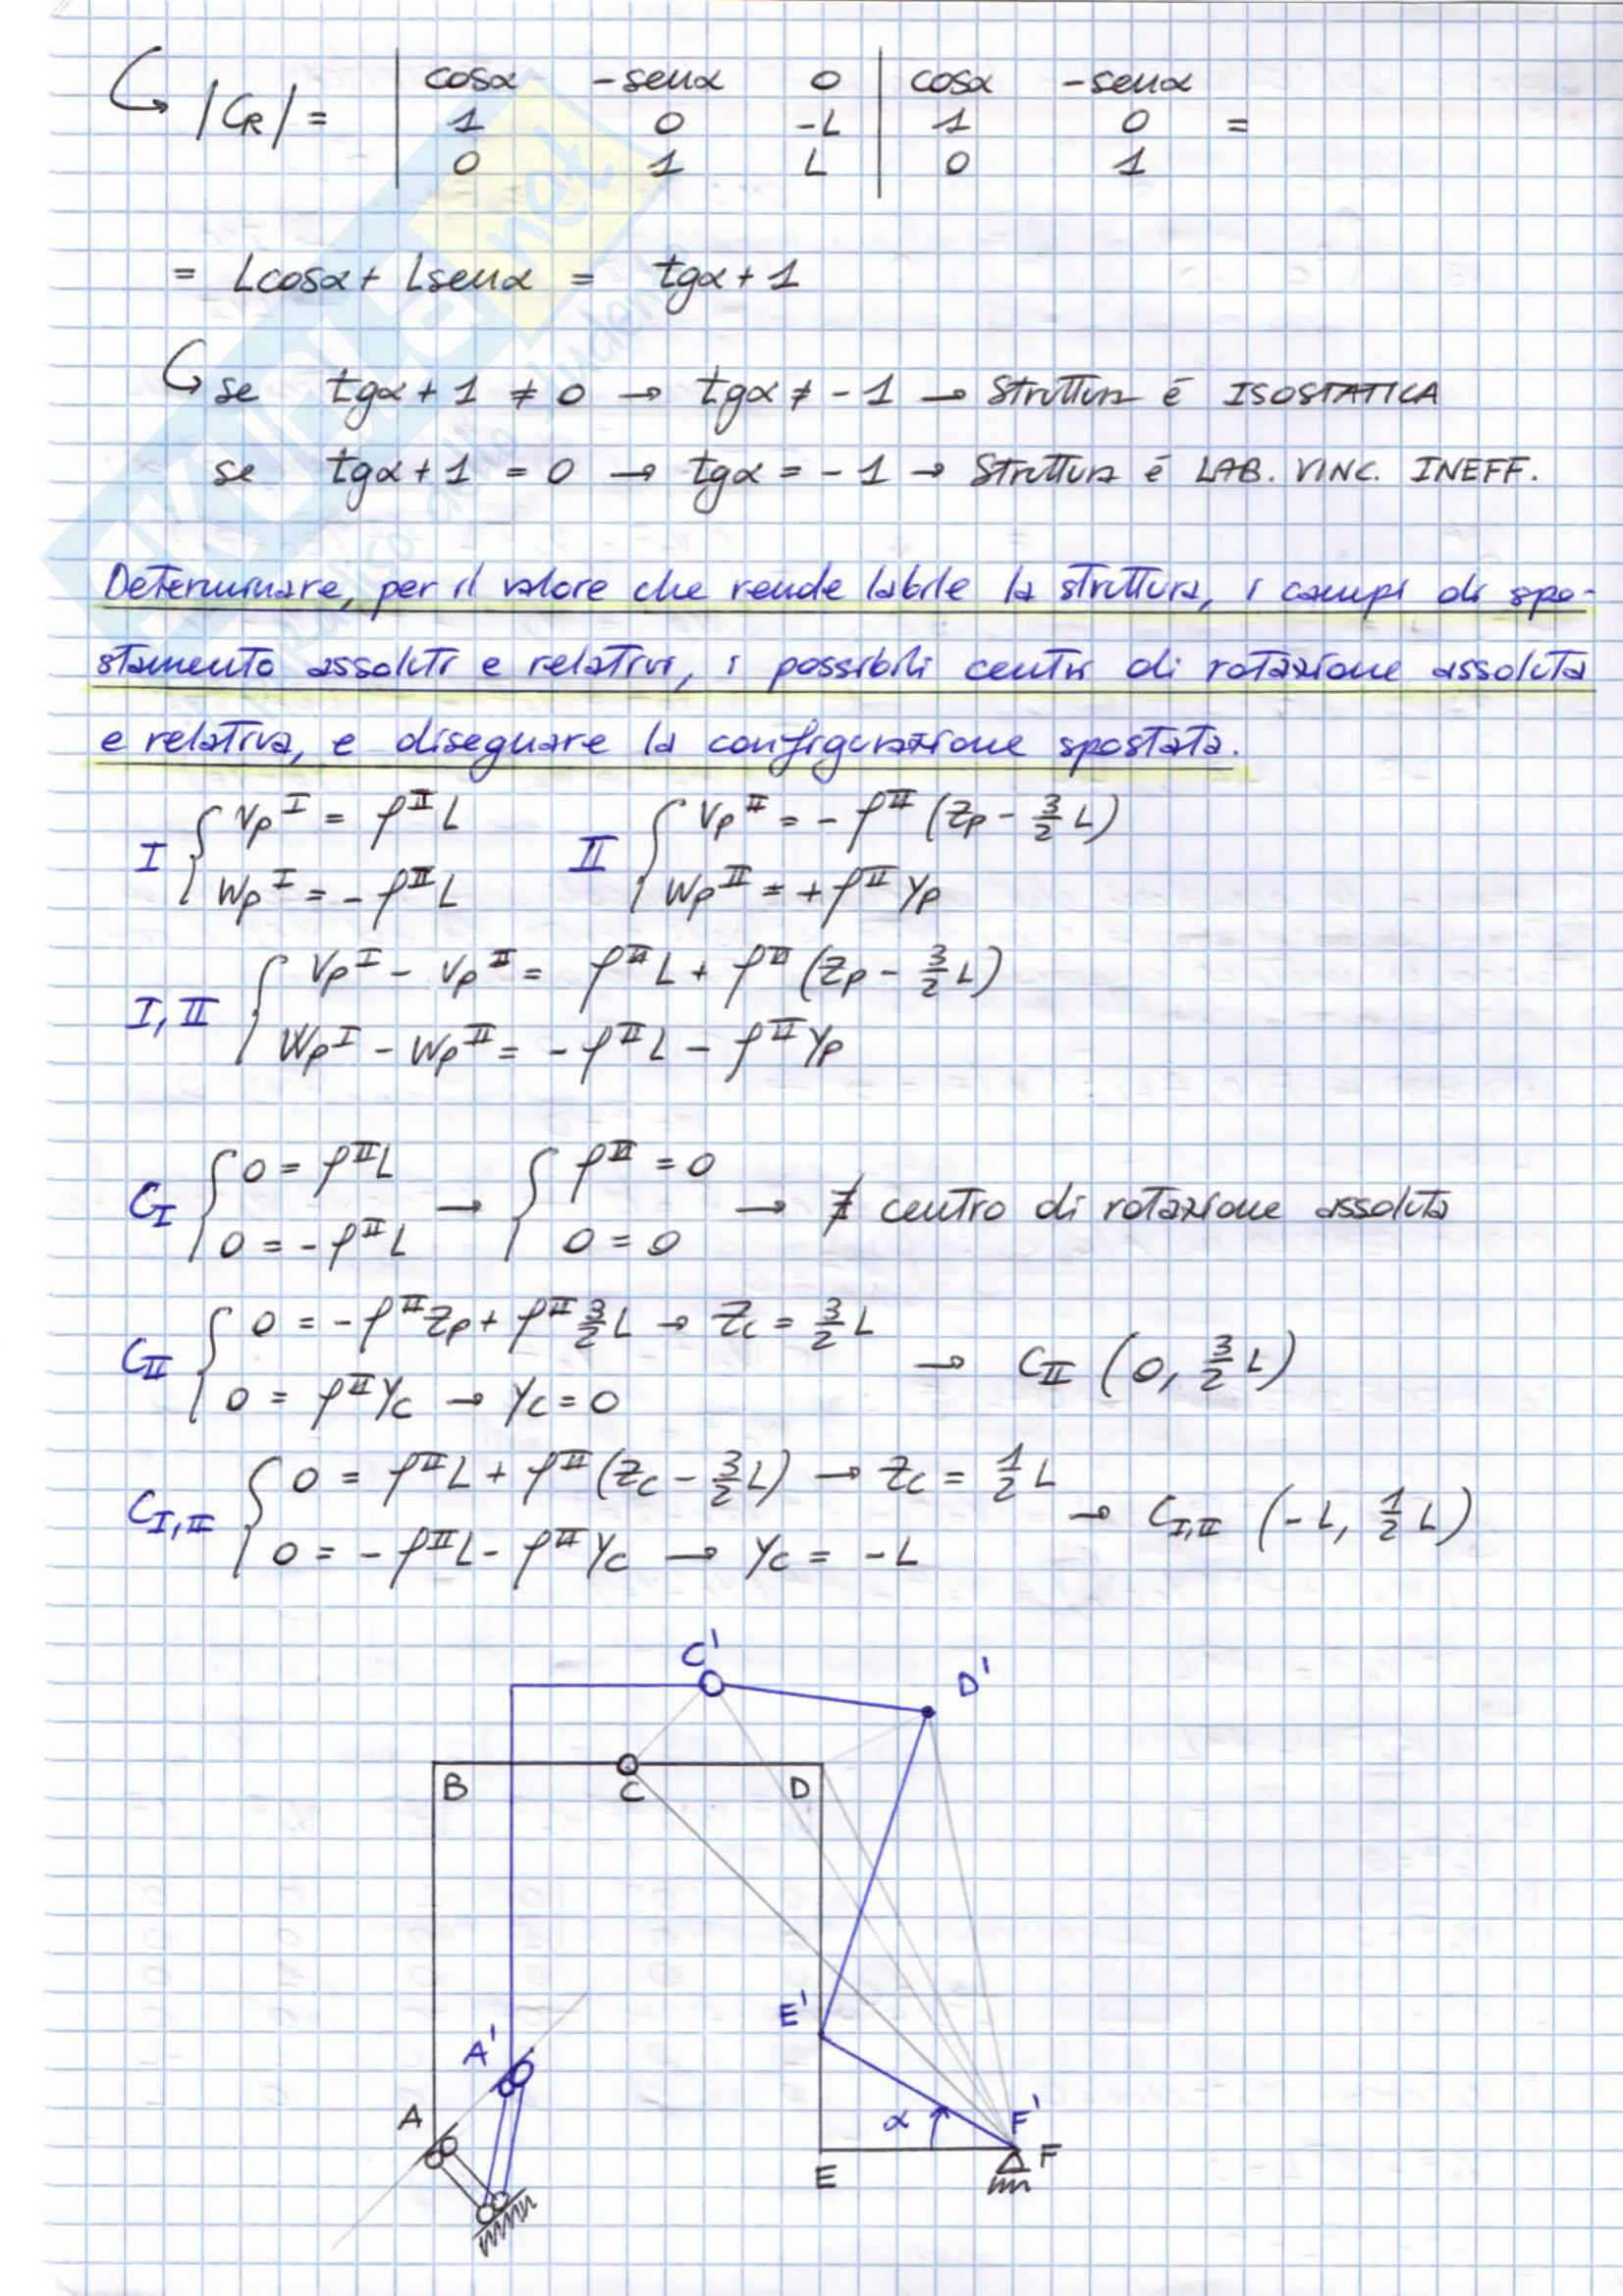 |C_R| = | cosα -senα 0 | cosα -senα
1 0 -L | 1 0 =
0 1 L | 0 1
= Lcosα + Lsenα = tgα + 1
se tgα + 1 ≠ 0 → tgα ≠ -1 → Struttura é ISOSTATICA
se tgα + 1 = 0 → tgα = -1 → Struttura é LAB. VINC. INEFF.
Determinare, per il valore che rende labile la struttura, i campi di spo-
stamento assoluti e relativi, i possibili centri di rotazione assoluta
e relativa, e disegnare la configurazione spostata.
I { Vp^I = ρ^II L II { Vp^II = - ρ^II (Zp - 3/2 L)
Wp^I = - ρ^II L Wp^II = + ρ^II Yp
I, II { Vp^I - Vp^II = ρ^II L + ρ^II (Zp - 3/2 L)
Wp^I - Wp^II = - ρ^II L - ρ^II Yp
C_I { 0 = ρ^II L → { ρ^II = 0 → ∄ centro di rotazione assoluta
0 = - ρ^II L 0 = 0
C_II { 0 = - ρ^II Zp + ρ^II 3/2 L → Zc = 3/2 L → C_II (0, 3/2 L)
0 = ρ^II Yc → Yc = 0
C_I,II { 0 = ρ^II L + ρ^II (Zc - 3/2 L) → Zc = 1/2 L → C_I,II (-L, 1/2 L)
0 = - ρ^II L - ρ^II Yc → Yc = - L
C'
D'
B
C
D
E'
A'
A
α
F'
F
E